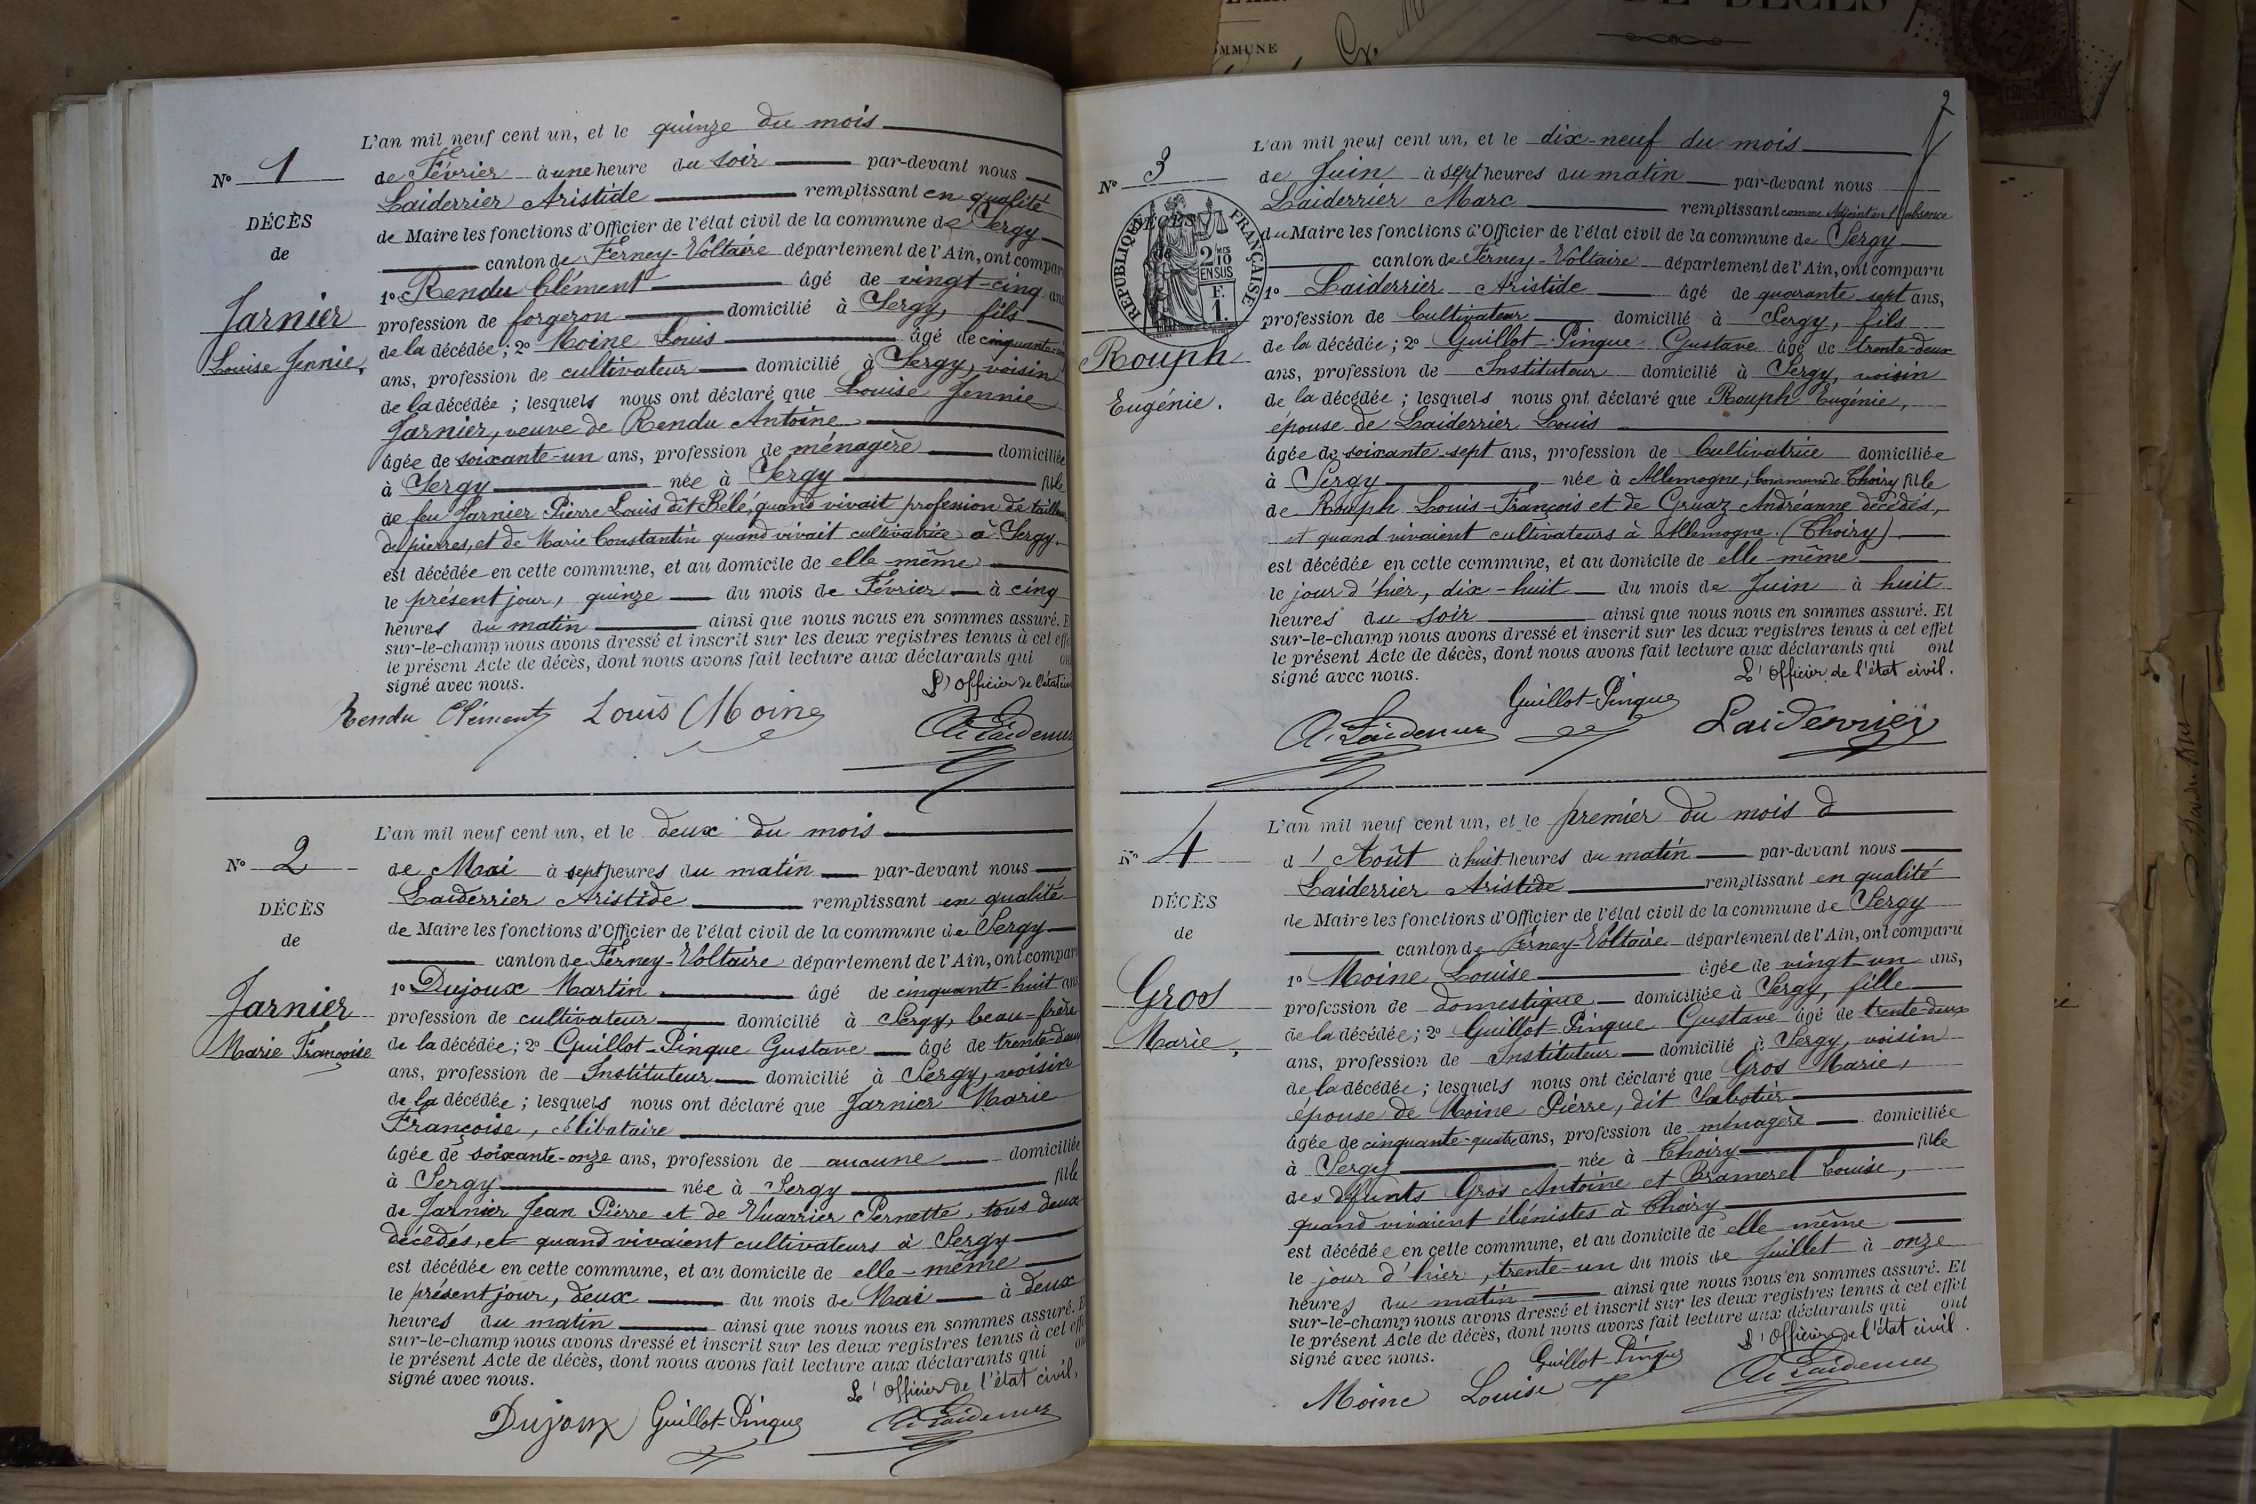 L'an mil neuf cent un, et le quinze du mois
N° 1
de Février à une heure du soir par-devant nous
Laiderrier Aristide remplissant en qualité
DÉCÈS
de Maire les fonctions d'Officier de l'état civil de la commune de Sergy
de
canton de Ferney-Voltaire département de l'Ain, ont comparu
1° Rendu Clément âgé de vingt-cinq ans
Jarnier
profession de forgeron domicilié à Sergy, fils
Louise Jennie,
de la décédée; 2° Moine Louis âgé de cinquante
ans, profession de cultivateur domicilié à Sergy, voisin
de la décédée; lesquels nous ont déclaré que Louise Jennie
Jarnier, veuve de Rendu Antoine
âgée de soixante-un ans, profession de ménagère domiciliée
à Sergy née à Sergy fille
de feu Jarnier Pierre Louis dit Bélé, quand vivait profession de tailleur
de pierres, et de Marie Constantin quand vivait cultivatrice à Sergy.
est décédée en cette commune, et au domicile de elle-même
le présent jour, quinze du mois de Février à cinq
heures du matin ainsi que nous nous en sommes assuré. E
sur-le-champ nous avons dressé et inscrit sur les deux registres tenus à cet effe
le présent Acte de décès, dont nous avons fait lecture aux déclarants qui on
signé avec nous.
L'Officier de l'état civ
Rendu Clément Louis Moine A. Laiderrier
L'an mil neuf cent un, et le deux du mois
N° 2
de Mai à sept heures du matin par-devant nous
Laiderrier Aristide remplissant en qualité
DÉCÈS
de Maire les fonctions d'Officier de l'état civil de la commune de Sergy
de
canton de Ferney-Voltaire département de l'Ain, ont comparu
1° Dujoux Martin âgé de cinquante-huit ans
Jarnier
profession de cultivateur domicilié à Sergy, beau-frère
Marie Françoise
de la décédée; 2° Guillot-Pingue Gustave âgé de trente-deux
ans, profession de Instituteur domicilié à Sergy, voisin
de la décédée; lesquels nous ont déclaré que Jarnier Marie
Françoise, célibataire
âgée de soixante-onze ans, profession de aucune domiciliée
à Sergy née à Sergy fille
de Jarnier Jean Pierre et de Vuarrier Pernette, tous deux
décédés, et quand vivaient cultivateurs à Sergy
est décédée en cette commune, et au domicile de elle-même
le présent jour, deux du mois de Mai à deux
heures du matin ainsi que nous nous en sommes assuré. E
sur-le-champ nous avons dressé et inscrit sur les deux registres tenus à cet effe
le présent Acte de décès, dont nous avons fait lecture aux déclarants qui on
signé avec nous.
L'Officier de l'état civil,
Dujoux Guillot-Pingue A. Laiderrier
DE DÉCÈS
COMMUNE
2
L'an mil neuf cent un, et le dix-neuf du mois
N° 3
de Juin à sept heures du matin par-devant nous
Laiderrier Marc remplissant comme Adjoint en l'absence
DÉCÈS
du Maire les fonctions d'Officier de l'état civil de la commune de Sergy
de
RÉPUBLIQUE FRANÇAISE
2 10
EN SUS
F.
1.
canton de Ferney-Voltaire département de l'Ain, ont comparu
1° Laiderrier Aristide âgé de quarante-sept ans,
profession de Cultivateur domicilié à Sergy, fils
Rouph
Eugénie.
de la décédée; 2° Guillot-Pingue Gustave âgé de trente-deux
ans, profession de Instituteur domicilié à Sergy, voisin
de la décédée; lesquels nous ont déclaré que Rouph Eugénie,
épouse de Laiderrier Louis
âgée de soixante-sept ans, profession de Cultivatrice domiciliée
à Sergy née à Allemogne, Commune de Thoiry fille
de Rouph Louis-François et de Gruaz Andréanne décédés,
et quand vivaient cultivateurs à Allemogne. (Thoiry)
est décédée en cette commune, et au domicile de elle-même
le jour d'hier, dix-huit du mois de Juin à huit
heures du soir ainsi que nous nous en sommes assuré. Et
sur-le-champ nous avons dressé et inscrit sur les deux registres tenus à cet effet
le présent Acte de décès, dont nous avons fait lecture aux déclarants qui ont
signé avec nous.
L'Officier de l'état civil.
A. Laiderrier Guillot-Pingue Laiderrier
L'an mil neuf cent un, et le premier du mois d
N° 4
d'Août à huit heures du matin par-devant nous
Laiderrier Aristide remplissant en qualité
DÉCÈS
de Maire les fonctions d'Officier de l'état civil de la commune de Sergy
de
canton de Ferney-Voltaire département de l'Ain, ont comparu
1° Moine Louise âgée de vingt-un ans,
Gros
profession de domestique domiciliée à Sergy, fille
Marie,
de la décédée; 2° Guillot-Pingue Gustave âgé de trente-deux
ans, profession de Instituteur domicilié à Sergy, voisin
de la décédée; lesquels nous ont déclaré que Gros Marie,
épouse de Moine Pierre, dit Sabotier
âgée de cinquante-quatre ans, profession de ménagère domiciliée
à Sergy née à Thoiry fille
des défunts Gros Antoine et Bramerel Louise,
quand vivaient ébénistes à Thoiry
est décédée en cette commune, et au domicile de elle même
le jour d'hier, trente-un du mois de Juillet à onze
heures du matin ainsi que nous nous en sommes assuré. Et
sur-le-champ nous avons dressé et inscrit sur les deux registres tenus à cet effet
le présent Acte de décès, dont nous avons fait lecture aux déclarants qui ont
signé avec nous.
L'Officier de l'état civil.
Moine Louise Guillot-Pingue A. Laiderrier